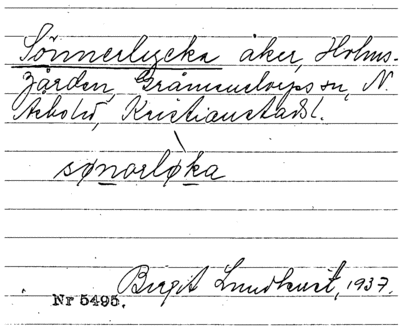 Sönnerlycka åker, Holms-
gården, Gråmanstorps sn, N.
Åsbohd, Kristianstads l.
sønorløka
Birgit Lundkvist, 1937.
Nr 5495.